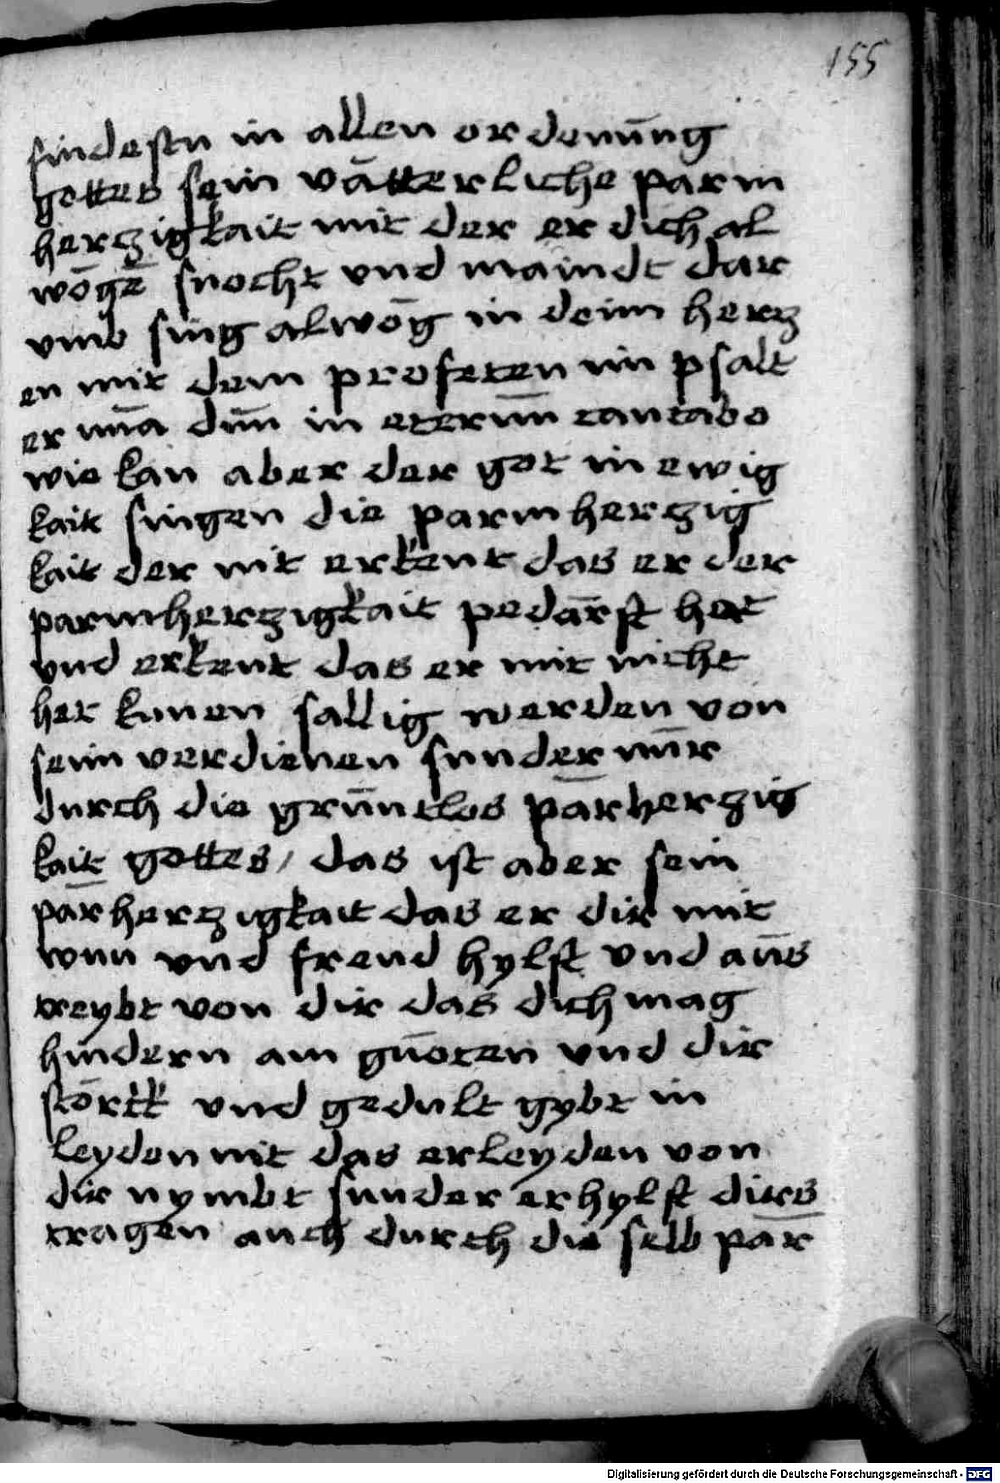 155
findestu in allen ordenūng
gottes sein vätterliche parm
herczigkait mit der er dich al
wögē suocht vnd maindt dar
vmb sing alwög in deim hercz
en mit dem profeten im psalt
er mīa dīni in eternū cantabo
wie kan aber der got in ewig
kait singen die parmherczig
kait der nit erkent das er der
parmherczigkait pedārft het
vnd erkent das er mit nicht
het kunen sällig werden von
seim verdienen sunder nūr
durch die grūntlos pārherczig
kait gottes / das ist aber sein
pārherczigkait das er dir mit
wun vnd freud hylft vnd aūs
treybt von dir das dich mag
hindern am guoten vnd dir
störkk vnd gedult gybt in
leyden nit das er leyden von
dir nymbt sunder er hylft dirs
tragen auch durch die selb pār
Digitalisierung gefördert durch die Deutsche Forschungsgemeinschaft - DFG